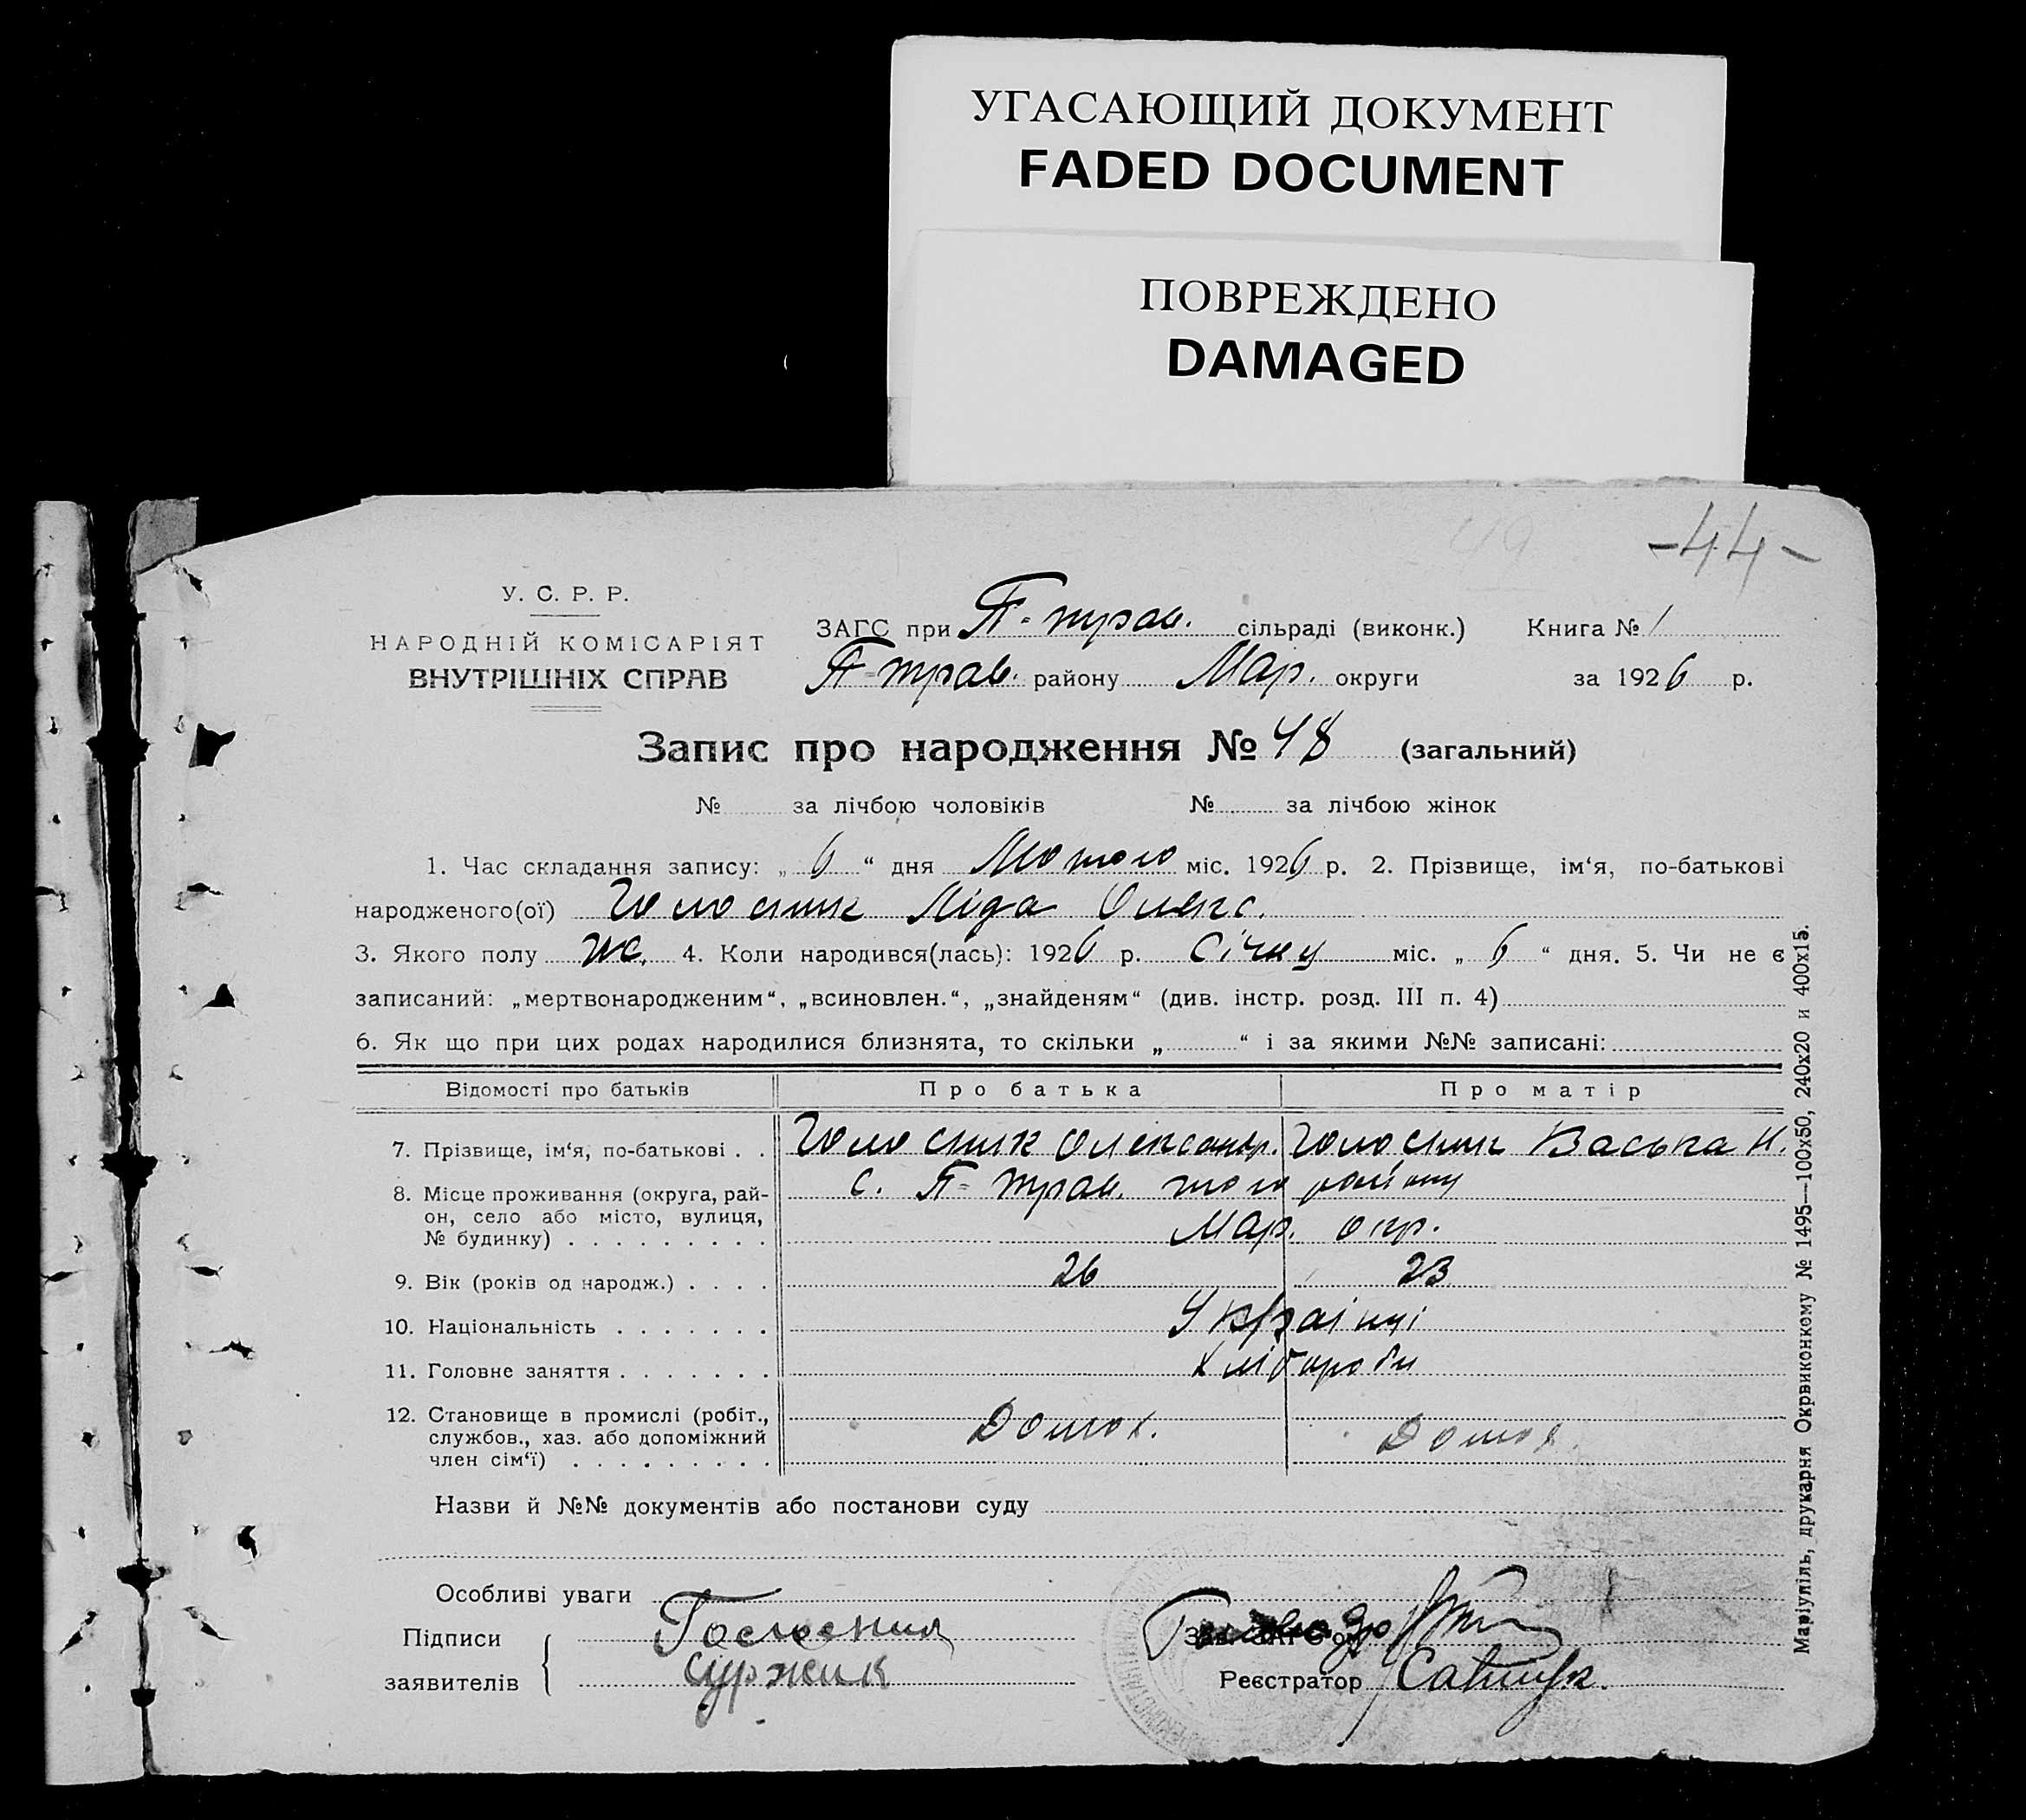 УГАСАЮЩИЙ ДОКУМЕНТ
FADED DOCUMENT
ПОВРЕЖДЕНО
DAMAGED
49
-44-
У. С. Р. Р.
НАРОДНІЙ КОМІСАРІЯТ
ВНУТРІШНІХ СПРАВ
ЗАГС при П-трав. сільраді (виконк.) Книга № 1
П-трав. району Мар. округи за 1926 р.
Запис про народження № 48 (загальний)
№ за лічбою чоловіків № за лічбою жінок
1. Час складання запису: „ 6 “ дня Лютого міс. 1926 р. 2. Прізвище, ім‘я, по-батькові
народженого(ої) Голосник Ліда Олекс.
3. Якого полу ж. 4. Коли народився(лась): 1926 р. Січну міс. „ 6 “ дня. 5. Чи не є
записаний: „мертвонародженим“, „всиновлен.“, „знайденям“ (див. інстр. розд. III п. 4)
6. Як що при цих родах народилися близнята, то скільки „ “ і за якими №№ записані:
Відомості про батьків Про батька Про матір
7. Прізвище, ім‘я, по-батькові . . Голосник Олександр. Голосник Васька Н.
8. Місце проживання (округа, рай- с. П-трав. того району
он, село або місто, вулиця,
№ будинку) . . . . . . . . . Мар. окр.
9. Вік (років од народж.) . . . . 26 23
10. Національність . . . . . . . Українці
11. Головне заняття . . . . . . . Хлібороби
12. Становище в промислі (робіт.,
службов., хаз. або допоміжний Домог. Домог.
член сім‘ї) . . . . . . . . .
Назви й №№ документів або постанови суду
Особливі уваги
Підписи
заявителів Суржик
Зав. ЗАГС‘ом
Реєстратор
Маріупіль, друкарня Окрвиконкому № 1495—100x50, 240x20 и 400x15.